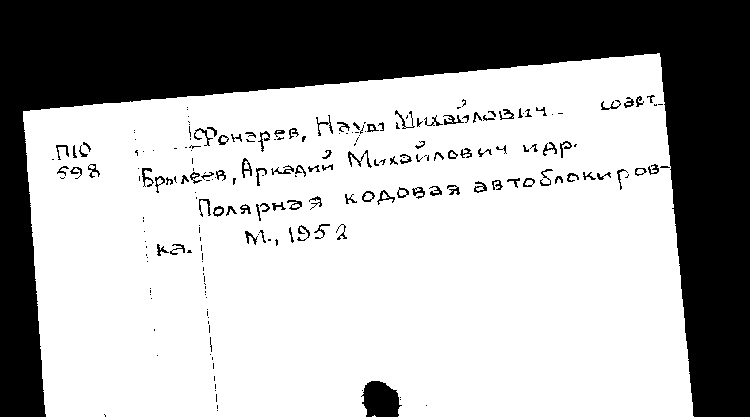 Фонарев, Наум Михайлович соавт.
П10
598 Брылеев, Аркадий Михайлович и др.
Полярная кодовая автоблокиров-
ка. М., 1952